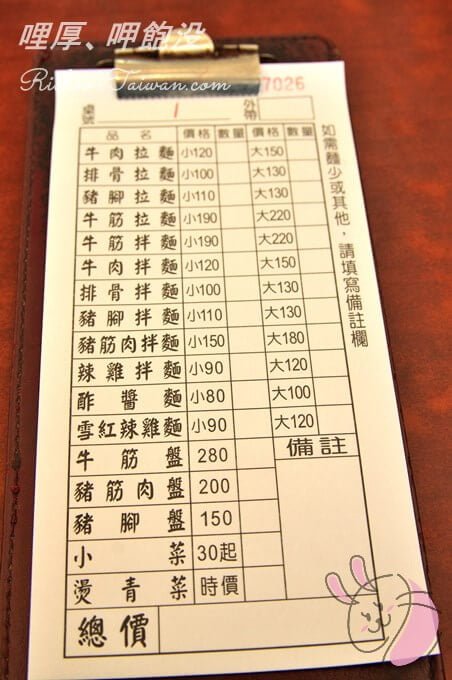 哩厚、呷飽没
7026
桌號 1 外帶
品名 價格 數量 價格 數量
牛肉拉麵 小120 大150
排骨拉麵 小100 大130
豬腳拉麵 小110 大130
牛筋拉麵 小190 大220
牛筋拌麵 小190 大220
牛肉拌麵 小120 大150
排骨拌麵 小100 大130
豬腳拌麵 小110 大130
豬筋肉拌麵 小150 大180
辣雞拌麵 小90 大120
酢醬麵 小80 大100
雪紅辣雞麵 小90 大120
牛筋盤 280 備註
豬筋肉盤 200
豬腳盤 150
小菜 30起
燙青菜 時價
總價
如需麵少或其他，請填寫備註欄